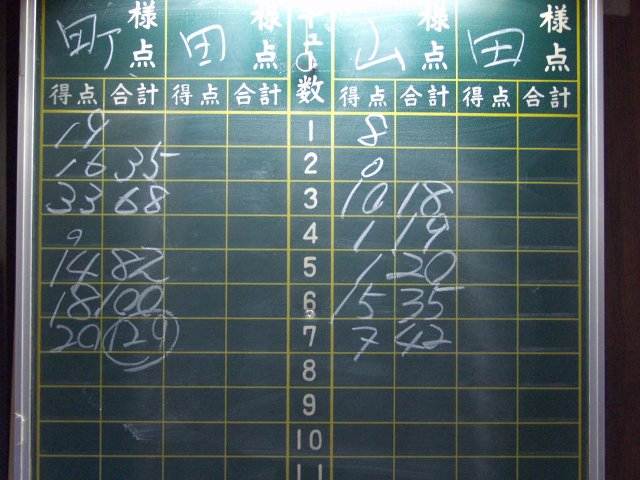 町 様 田 様 山 様 田 様
点 点 数 点 点
得点 合計 得点 合計 得点 合計 得点 合計
19 1 8
16 35 2 0
33 68 3 10 18
4 1 19
14 82 5 1 20
18 100 6 15 35
20 120 7 7 42
8
9
10
11